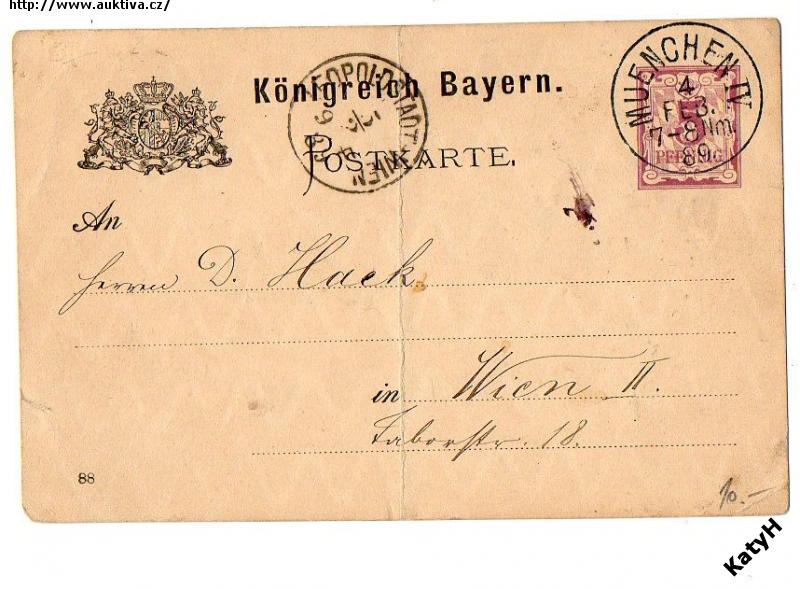 http://www.auktiva.cz/
Königreich Bayern.
POSTKARTE.
LEOPOLDSTADT WIEN
MUENCHEN IV
4
FEB.
7-8 Nm.
89
PFENNIG
An
Herren D. Hack
in Wien II.
Taborstr. 18.
88
10.-
KatyH